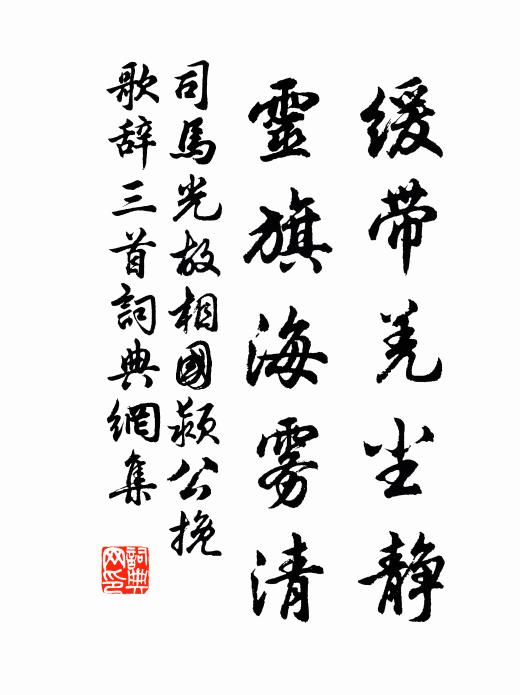 缓带羌尘静
靈旗海雾清
司馬光故相國颍公挽
歌辞三首詞典網集
詞典网印